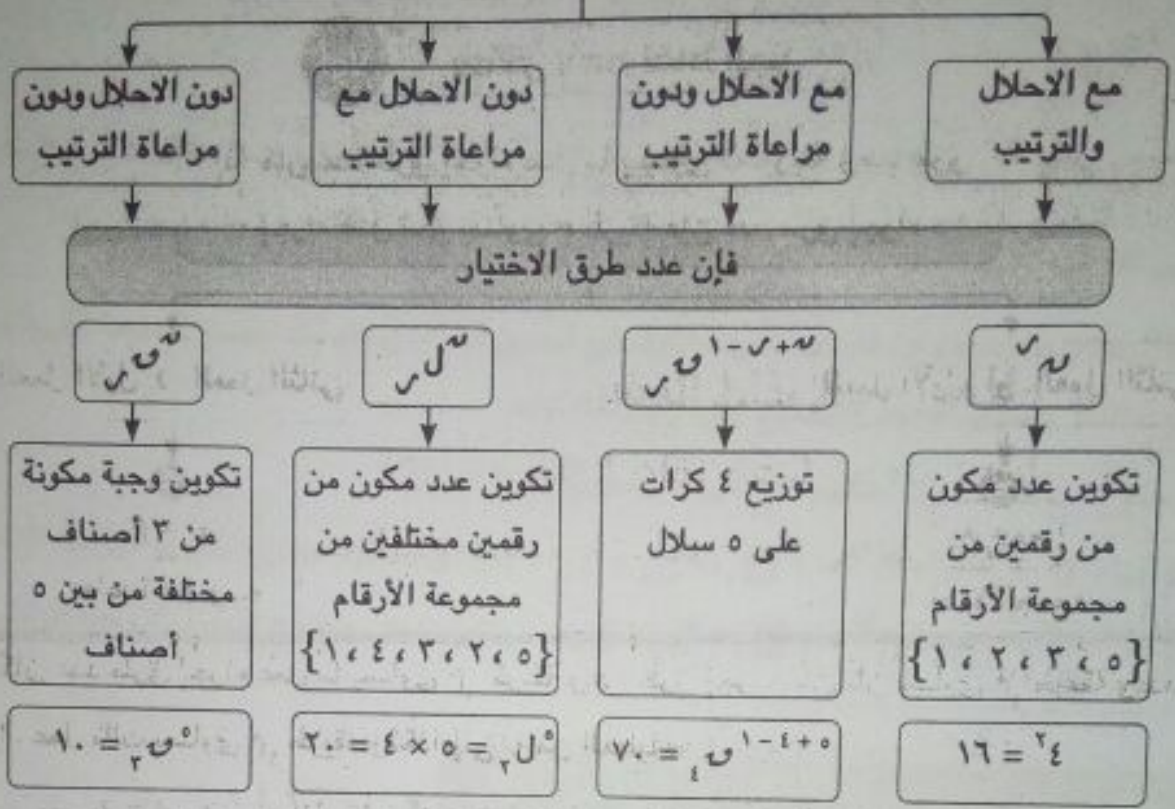 مع الاحلال
والترتيب
مع الاحلال ودون
مراعاة الترتيب
دون الاحلال مع
مراعاة الترتيب
دون الاحلال ودون
مراعاة الترتيب
فإن عدد طرق الاختيار
ن^ر
^{ن+ر-١}ق_ر
^نل_ر
^نق_ر
تكوين عدد مكون
من رقمين من
مجموعة الأرقام
{٥ ، ٣ ، ٢ ، ١}
توزيع ٤ كرات
على ٥ سلال
تكوين عدد مكون من
رقمين مختلفين من
مجموعة الأرقام
{٥ ، ٢ ، ٣ ، ٤ ، ١}
تكوين وجبة مكونة
من ٣ أصناف
مختلفة من بين ٥
أصناف
٤^٢ = ١٦
^{٥+٤-١}ق_٤ = ٧٠
^٥ل_٢ = ٥ × ٤ = ٢٠
^٥ق_٣ = ١٠